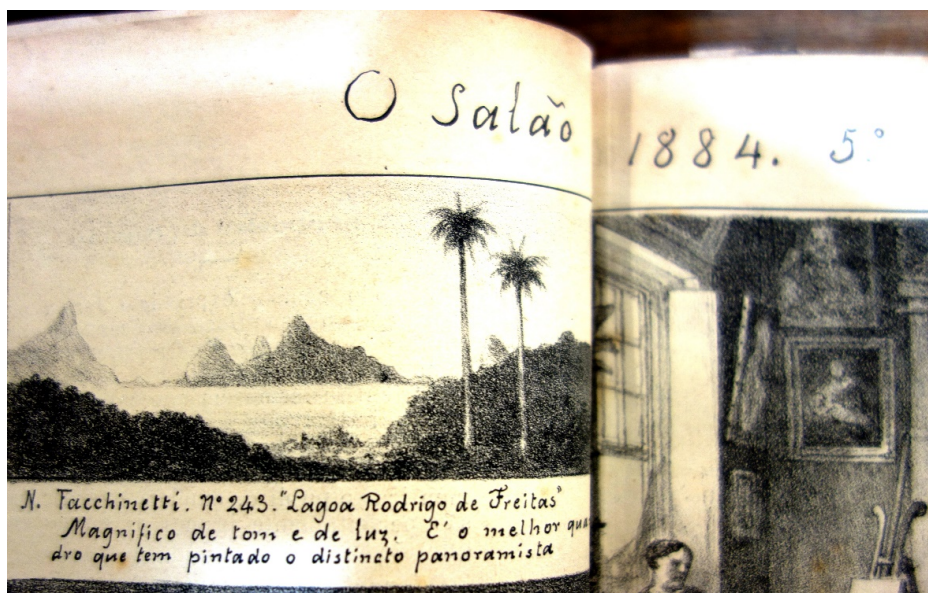 O Salão 1884. 5º
N. Facchinetti. Nº 243. "Lagoa Rodrigo de Freitas"
Magnifico de tom e de luz. É o melhor qua
dro que tem pintado o distincto panoramista